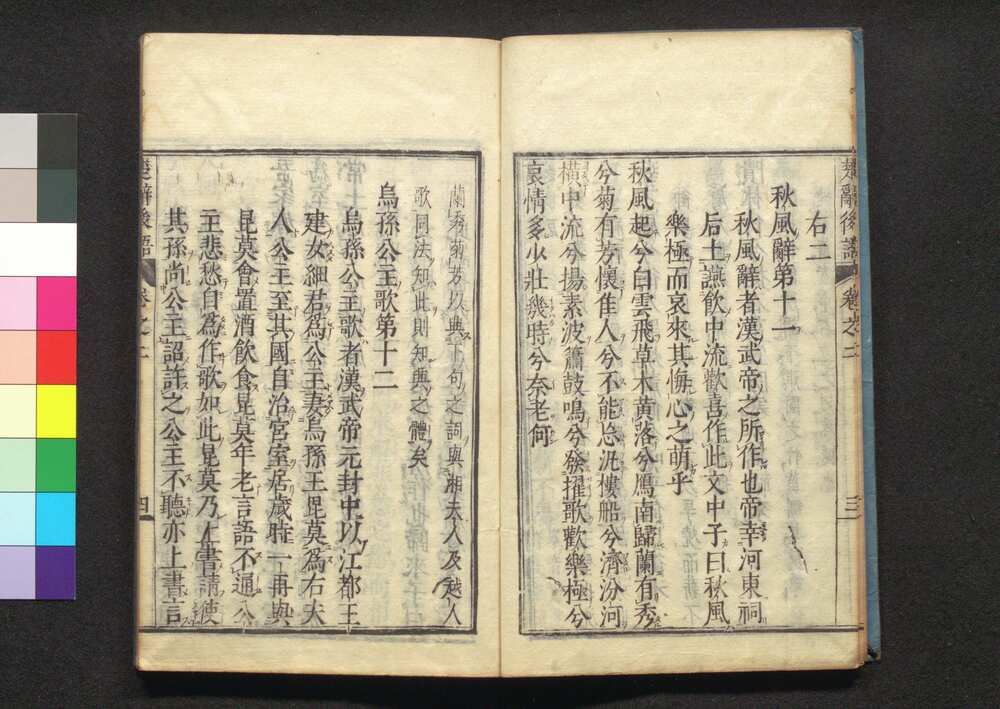 楚辭後語 卷之二 三
右二
秋風辭第十一
秋風辭者漢武帝之所作也帝幸河東祠
后土讌飲中流歡喜作此文中子曰秋風
樂極而哀來其悔心之萌乎
秋風起兮白雲飛草木黃落兮鴈南歸蘭有秀
兮菊有芳懷佳人兮不能忘泛樓船兮濟汾河
橫中流兮揚素波簫鼓鳴兮發擢歌歡樂極兮
哀情多少壯幾時兮奈老何
蘭秀菊芳以興下句之詞與湘夫人及越人
歌同法知此則知興之體矣
烏孫公主歌第十二
烏孫公主歌者漢武帝元封中以江都王
建女細君為公主妻烏孫王昆莫為右夫
人公主至其國自治宮室居歲時一再與
昆莫會置酒飲食昆莫年老言語不通公
主悲愁自為作歌如此昆莫乃上書請使
其孫尚公主詔許之公主不聽亦上書言
楚辭後語 卷之二 四